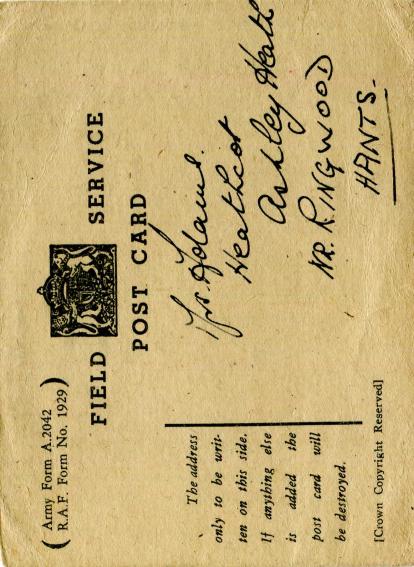 ( Army Form A.2042
R.A.F. Form No. 1929 )
FIELD SERVICE
POST CARD
The address
only to be writ-
ten on this side.
If anything else
is added the
post card will
be destroyed.
[Crown Copyright Reserved]
Adams.
Heathcot
Ashley Heath
NR. RINGWOOD
HANTS.